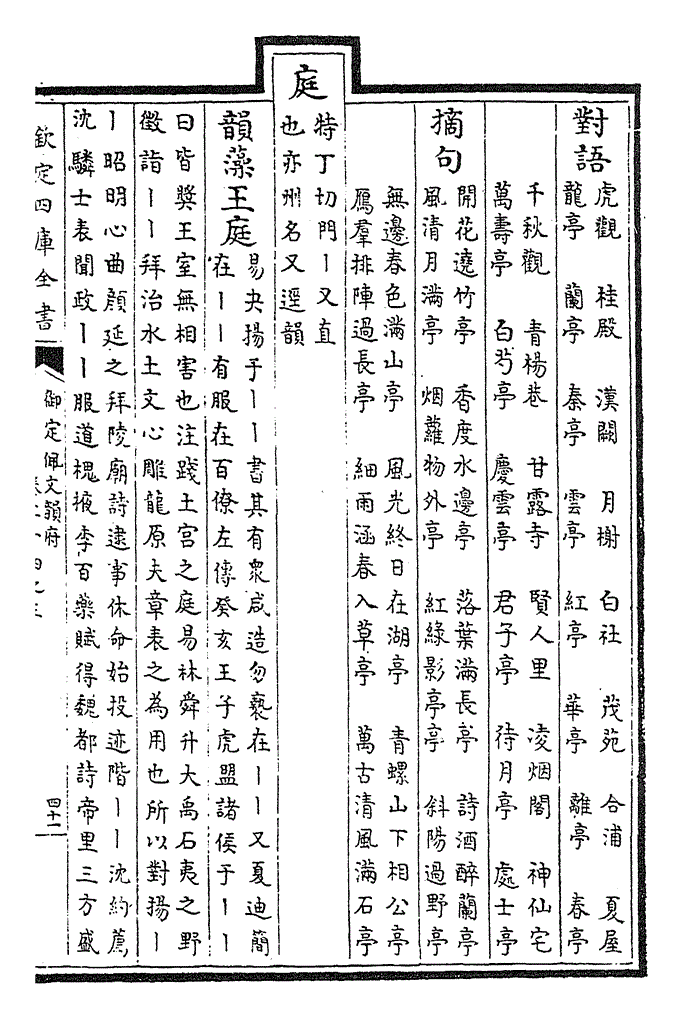 對語
虎觀　桂殿　漢闕　月榭　白社　茂苑　合浦　夏屋
龍亭　蘭亭　秦亭　雲亭　紅亭　華亭　離亭　春亭
千秋觀　青楊巷　甘露寺　賢人里　凌烟閣　神仙宅
萬壽亭　白芍亭　慶雲亭　君子亭　待月亭　處士亭
摘句
開花遶竹亭　香度水邊亭　落葉滿長亭　詩酒醉蘭亭
風清月滿亭　烟蘿物外亭　紅綠影亭亭　斜陽過野亭
無邊春色滿山亭　風光終日在湖亭　青螺山下相公亭
鴈羣排陣過長亭　細雨涵春入草亭　萬古清風滿石亭
庭
特丁切門丨又直
也亦州名又逕韻
韻藻王庭
易夬揚于丨丨書其有衆咸造勿褻在丨丨又夏迪簡
在丨丨有服在百僚左傳癸亥王子虎盟諸侯于丨丨
曰皆獎王室無相害也注踐土宫之庭易林舜升大禹石夷之野
徵詣丨丨拜治水土文心雕龍原夫章表之為用也所以對揚丨
丨昭明心曲顔延之拜陵廟詩逮事休命始投迹階丨丨沈約薦
沈驎士表聞政丨丨服道槐掖李百藥賦得魏都詩帝里三方盛
欽定四庫全書
御定佩文韻府
四十一